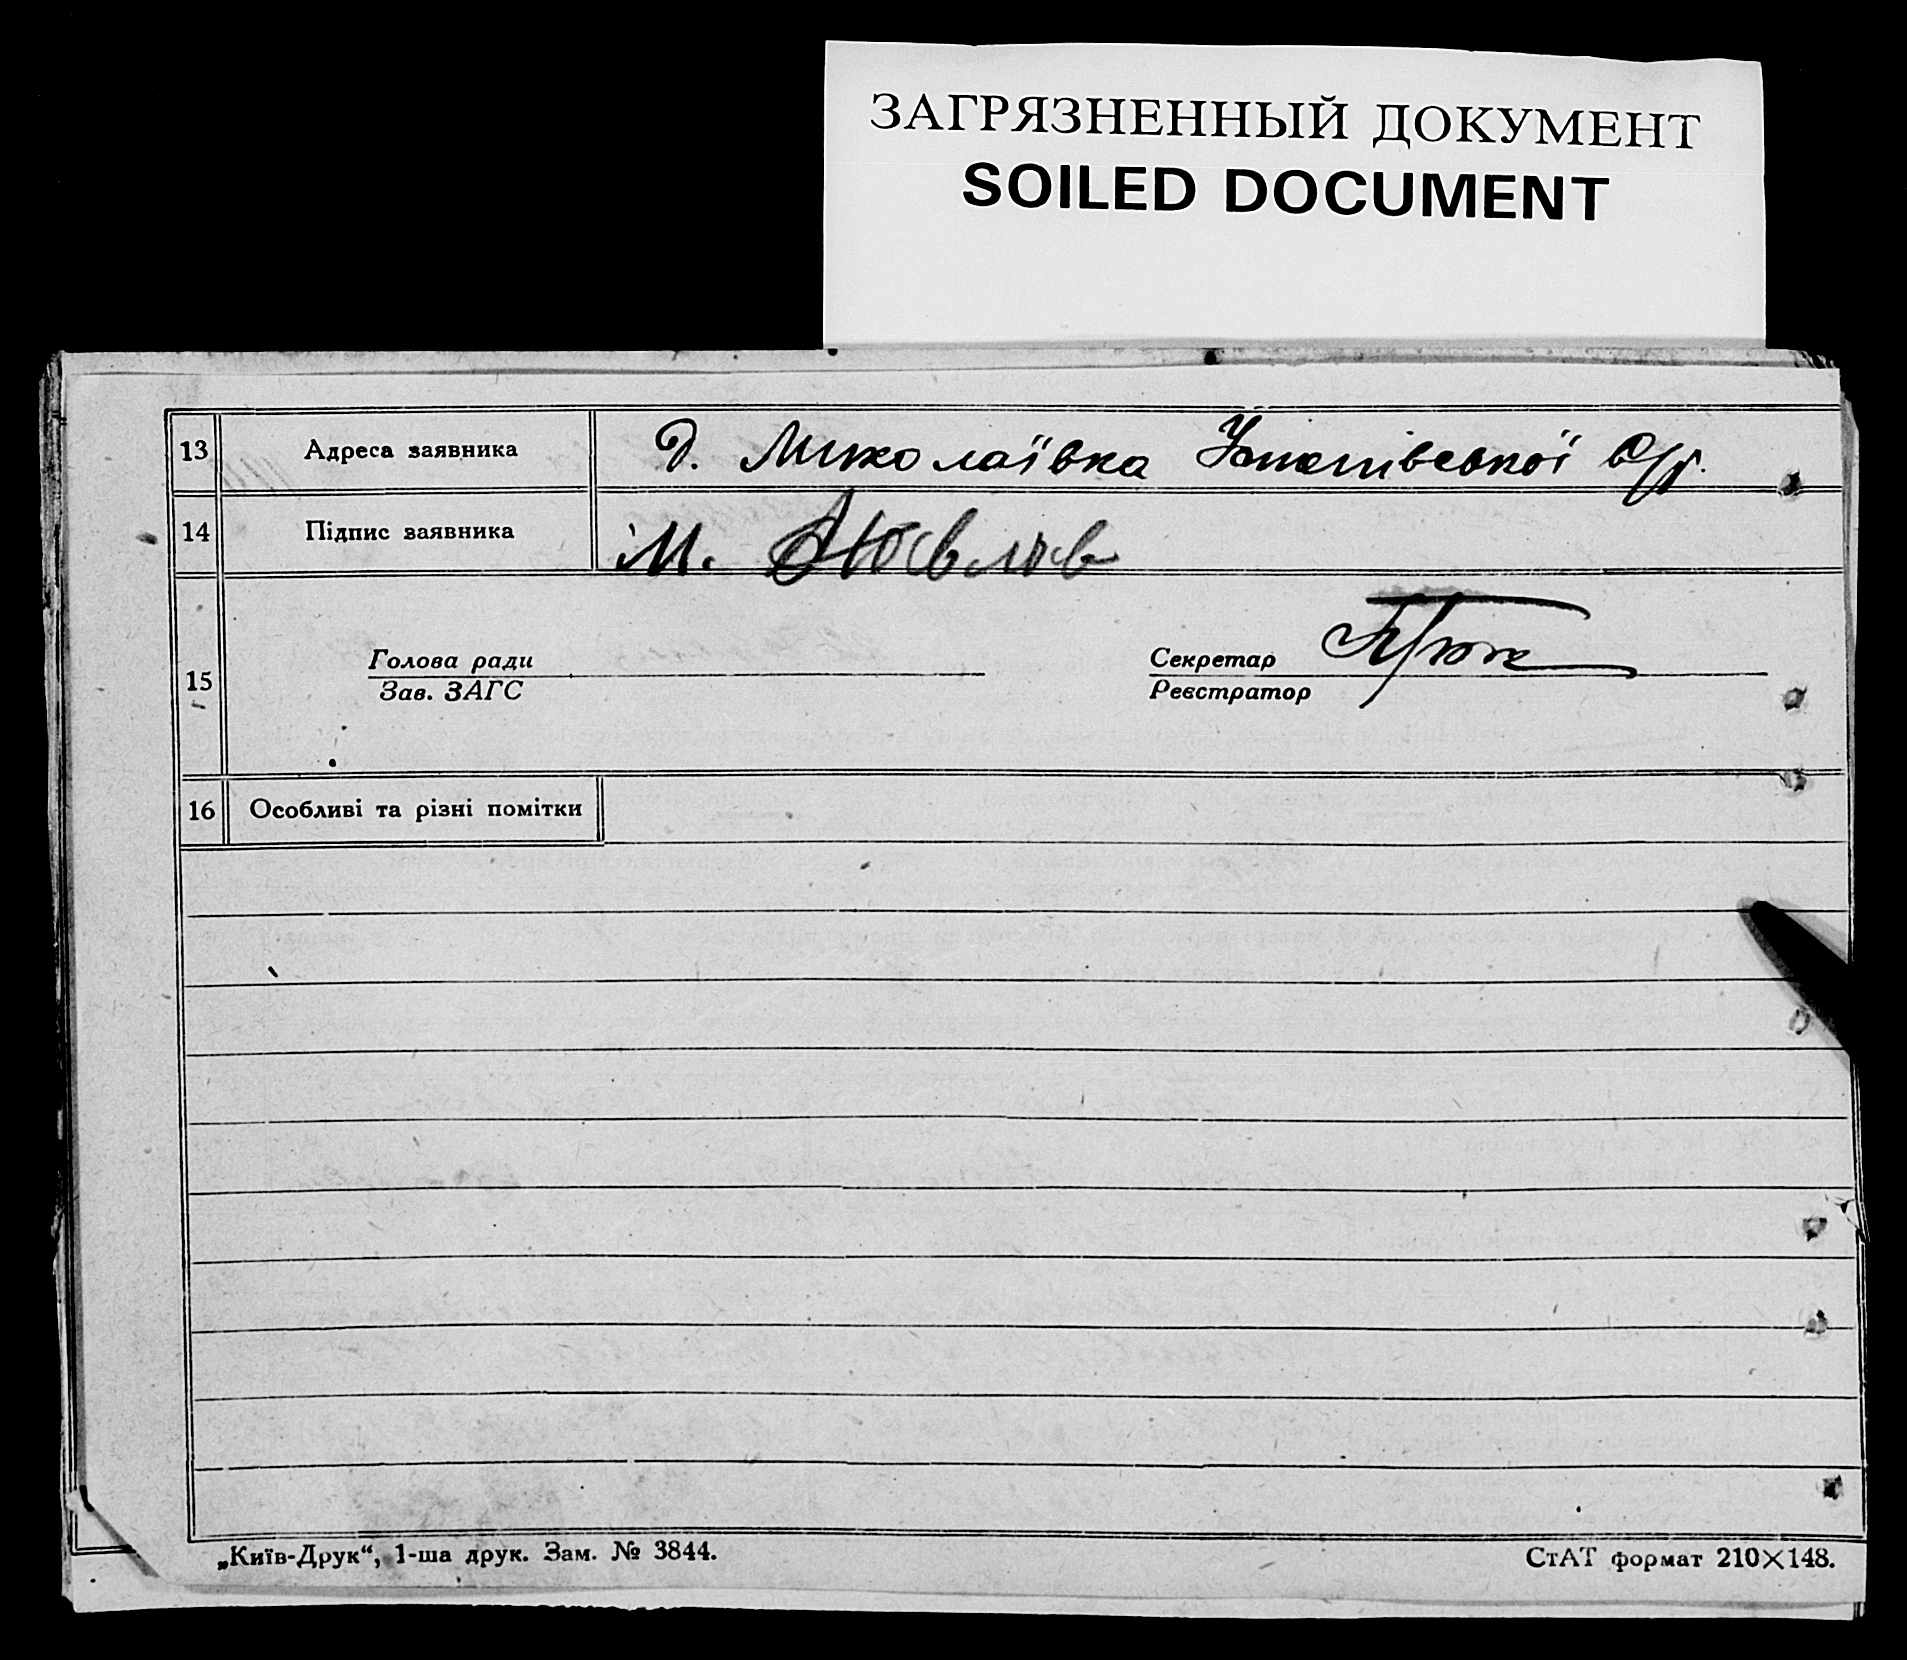 ЗАГРЯЗНЕННЫЙ ДОКУМЕНТ
SOILED DOCUMENT
13 Адреса заявника д. Миколаївка с/р.
14 Підпис заявника М.
15
Голова ради
Зав. ЗАГС
Секретар
Реєстратор
16 Особливі та різні помітки
„Київ-Друк“, 1-ша друк. Зам. № 3844.
СтАТ формат 210×148.